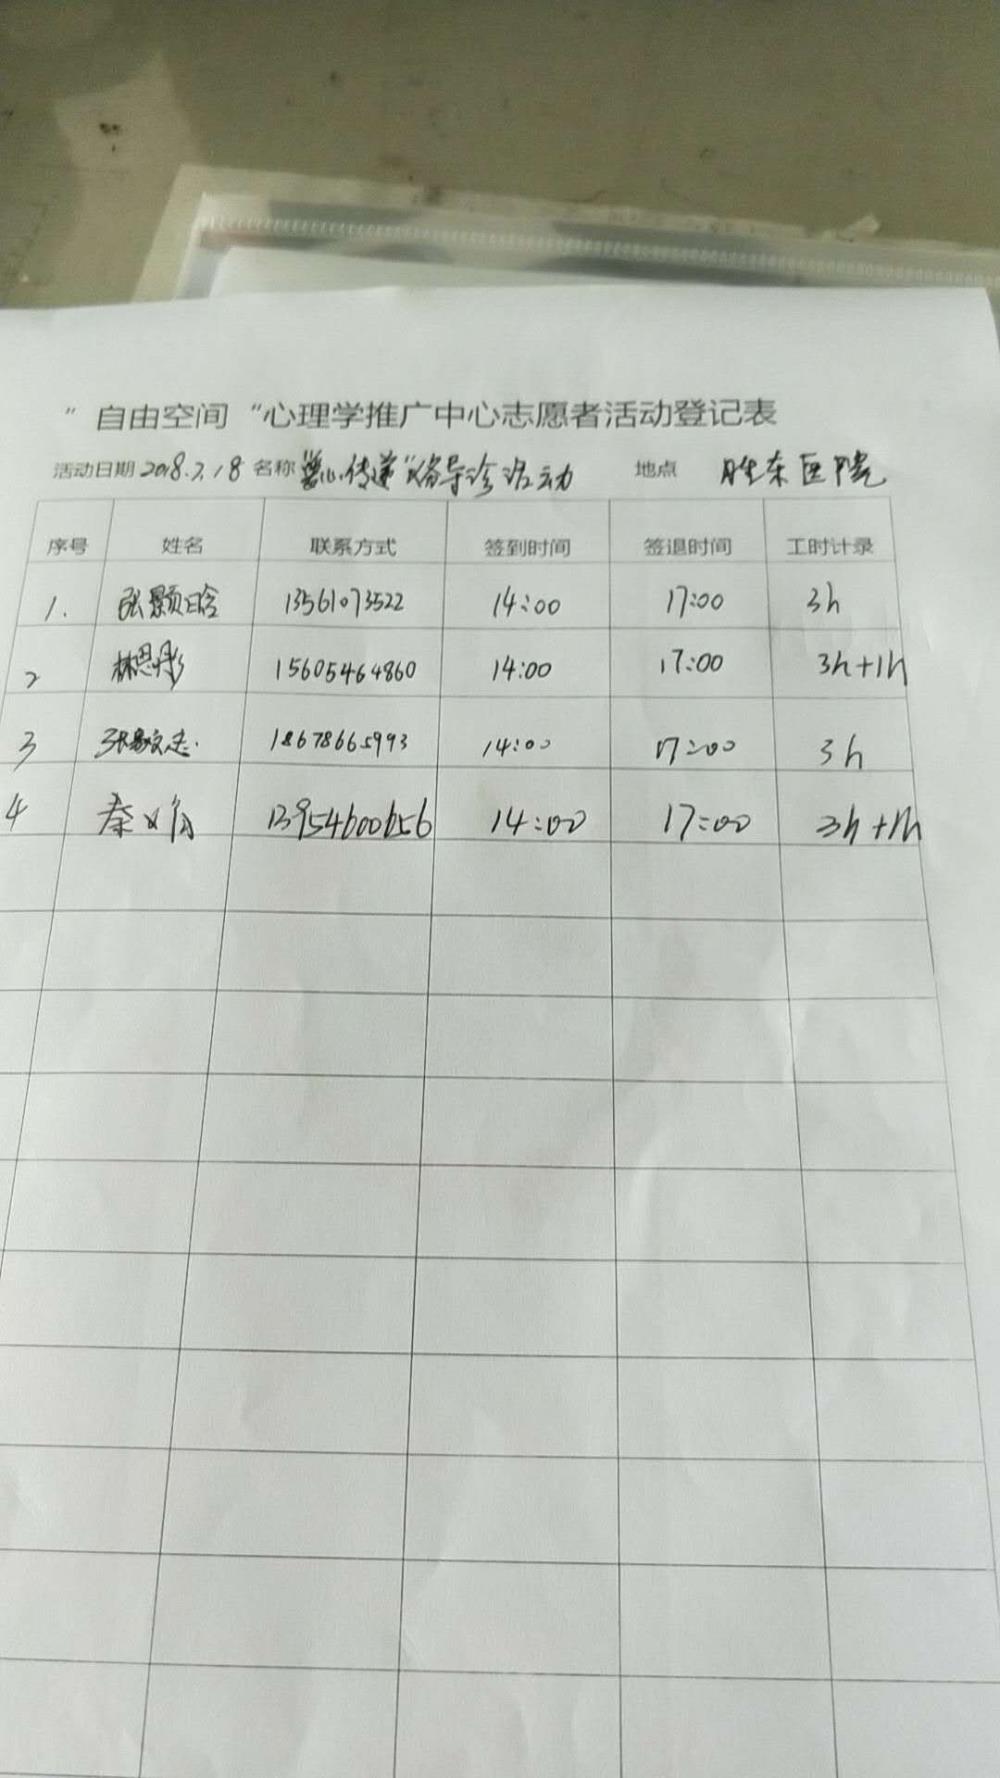 "自由空间"心理学推广中心志愿者活动登记表
活动日期 2018.7.18 名称 "爱心传递"义务导诊活动 地点 胜东医院
序号 姓名 联系方式 签到时间 签退时间 工时计录
1. 张颢晗 13561073522 14:00 17:00 3h
2 林思彤 15605464860 14:00 17:00 3h+1h
3 18678665993 14:00 17:00 3h
4 秦 13954600656 14:00 17:00 3h+1h